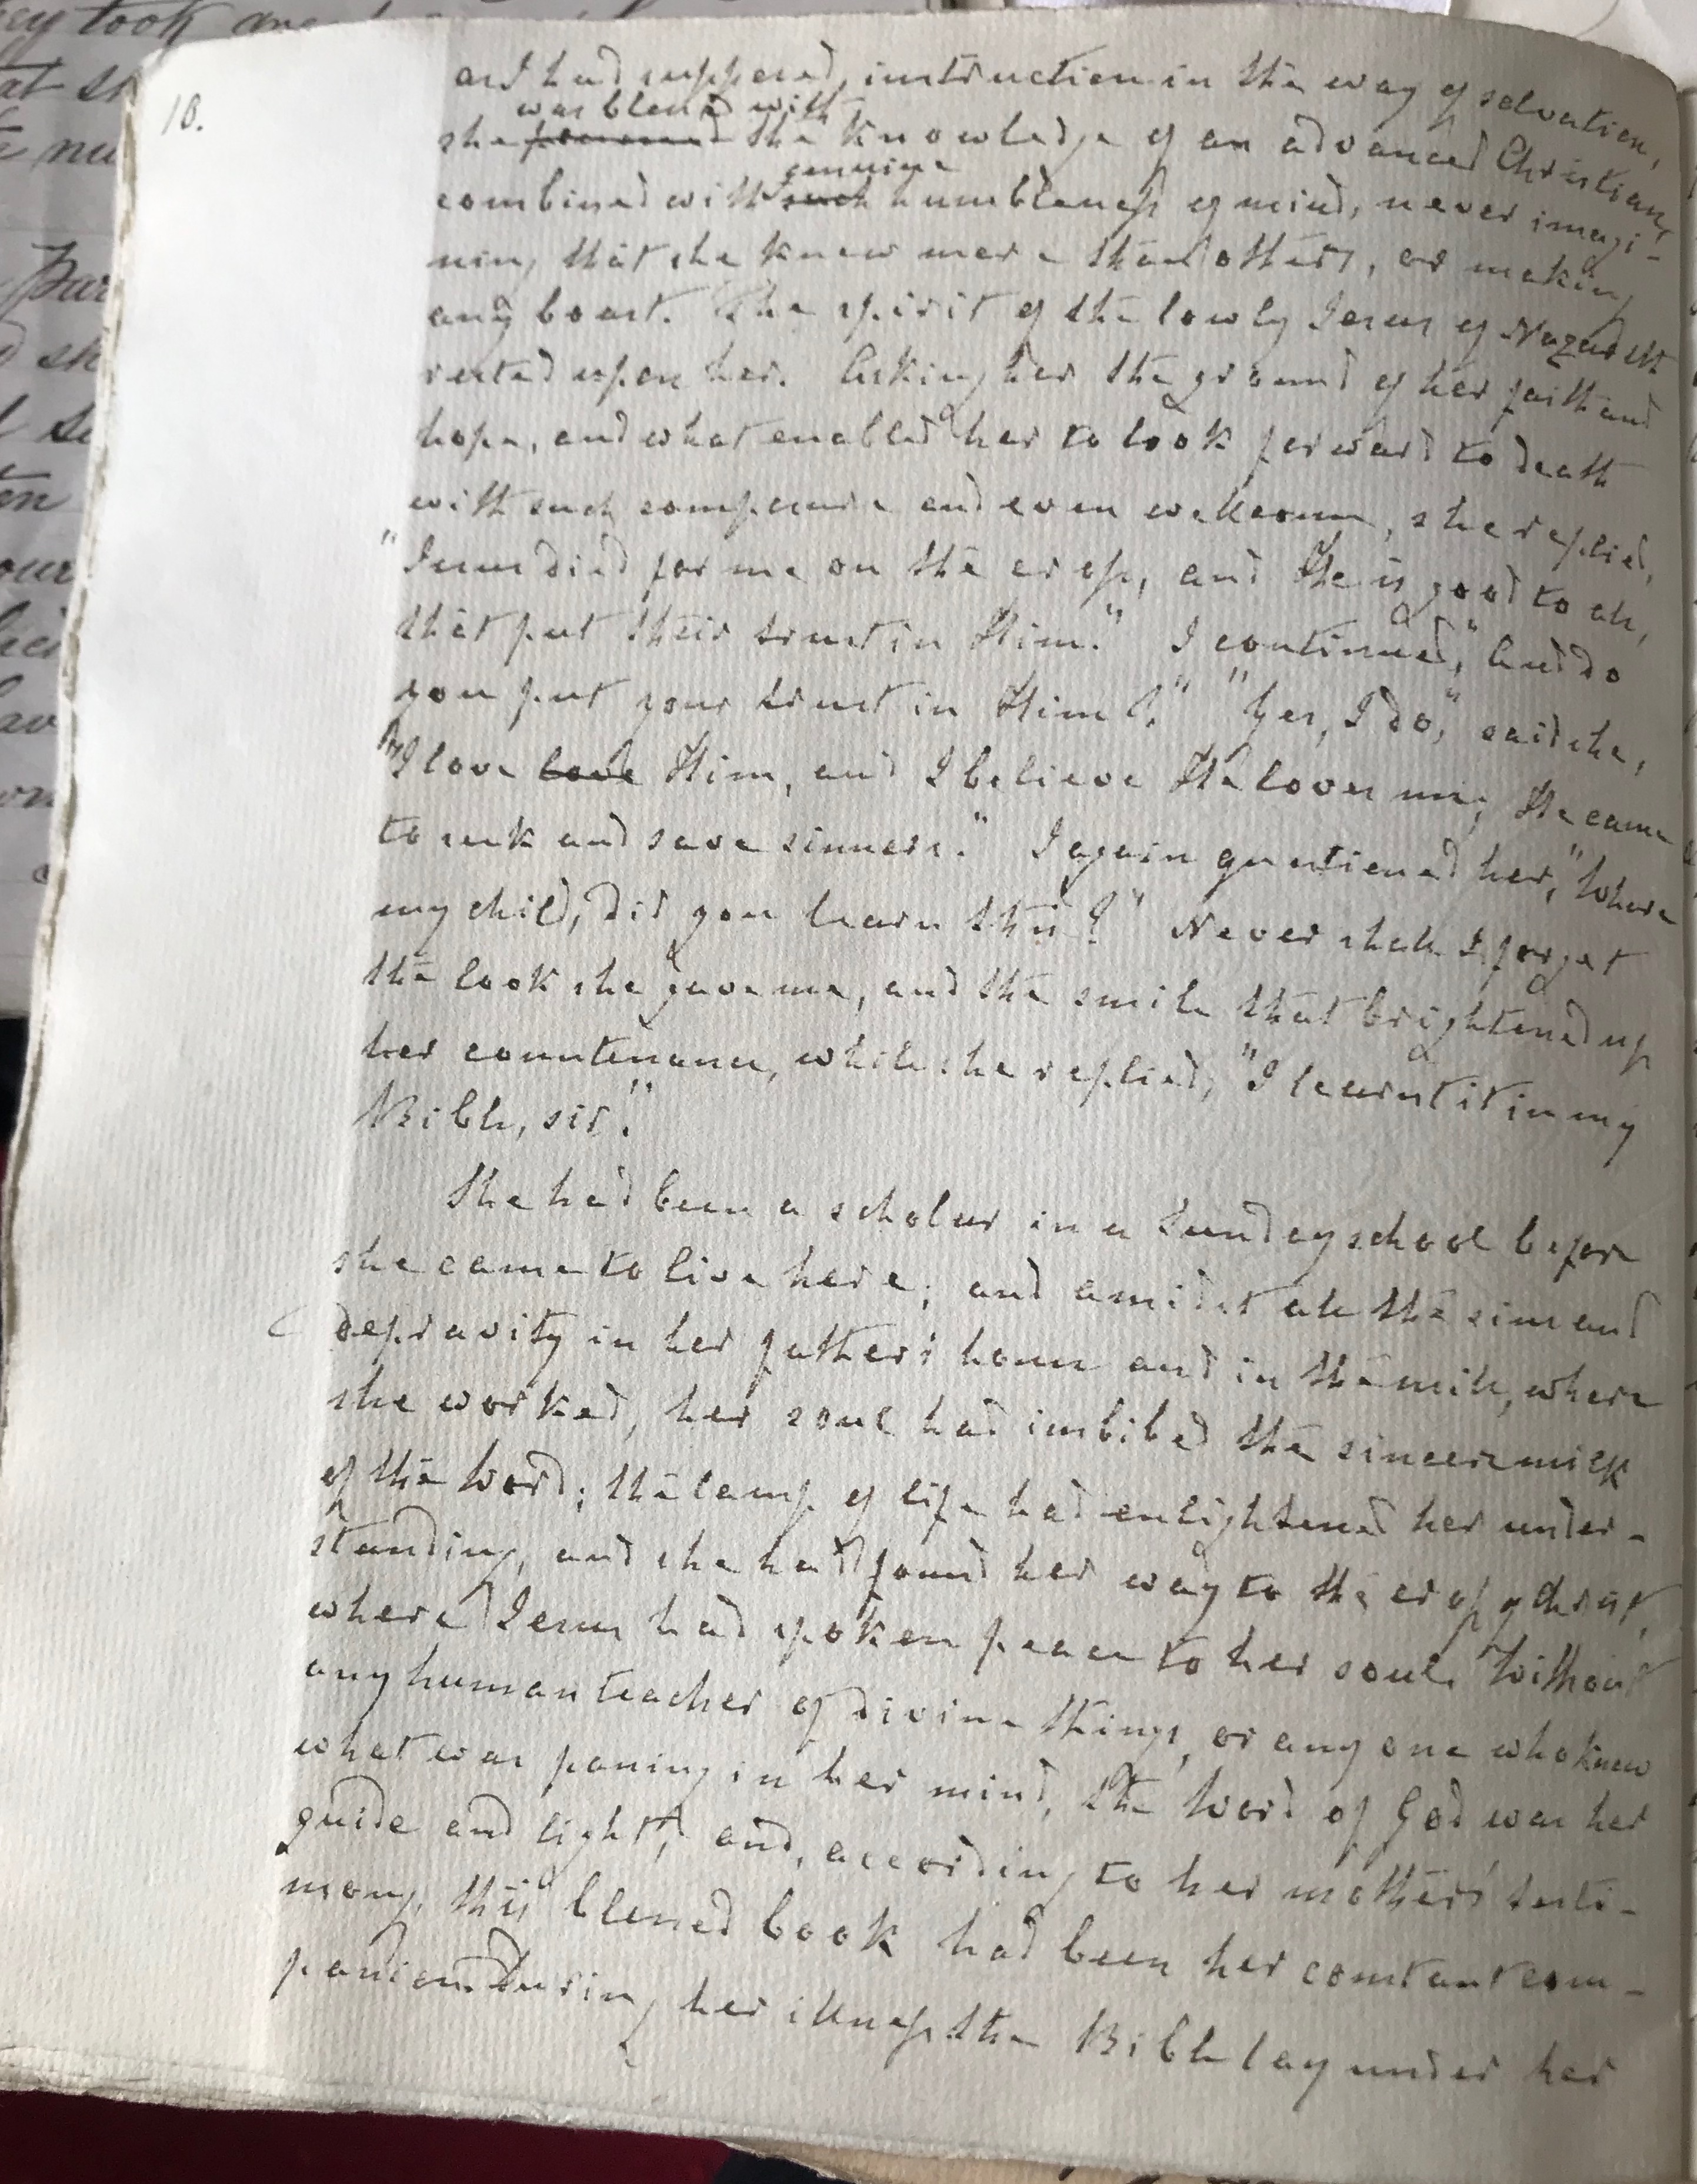 10.
as I had supposed, instruction in the way of salvation,
was blessed with
she possessed the knowledge of an advanced Christian,
genuine
combined with such humbleness of mind, never imagi-
ning that she knew more than others, or making
any boast. The spirit of the lowly Jesus of Nazareth
rested upon her. Asking her the ground of her faith and
hope, and what enabled her to look forward to death
with such composure and even welcome, she replied,
"Jesus died for me on the cross, and He is good to all,
that put their trust in Him." I continued, "And do
you put your trust in Him?" "Yes, I do," said she,
"I love love Him, and I believe He loves me; He came
to seek and save sinners." I again questioned her, "Where
my child, did you learn this?" Never shall I forget
the look she gave me, and the smile that brightened up
her countenance, while she replied, "I learnt it in my
Bible, sir."
She had been a scholar in a Sunday school before
she came to live here; and amidst all the sins and
depravity in her father's house and in the mill, where
she worked, her soul had imbibed the sincere milk
of the Word; the lamp of life had enlightened her under-
standing, and she had found her way to the cross of Christ,
where Jesus had spoken peace to her soul. Without
any human teacher of divine things, or any one who knew
what was passing in her mind, the Word of God was her
guide and light; and, according to her mother's testi-
mony, this blessed book had been her constant com-
panion. During her illness the Bible lay under her